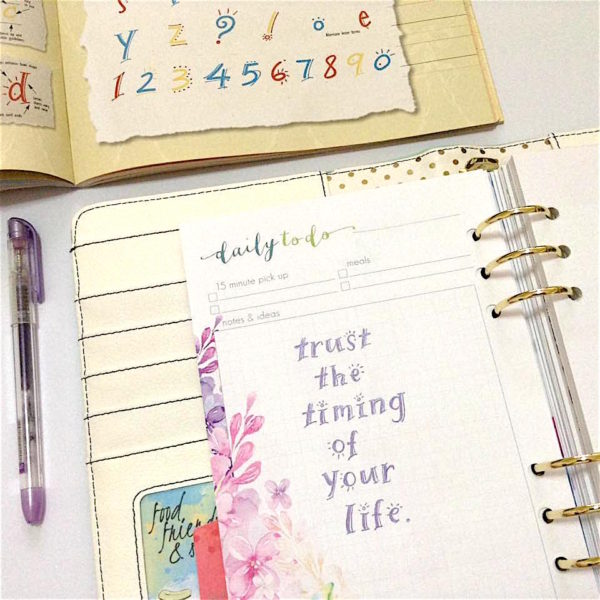 y z ? ! o e
1 2 3 4 5 6 7 8 9 0
d
daily to do
15 minute pick up
meals
notes & ideas
trust
the
timing
of
your
life.
food,
friends
&